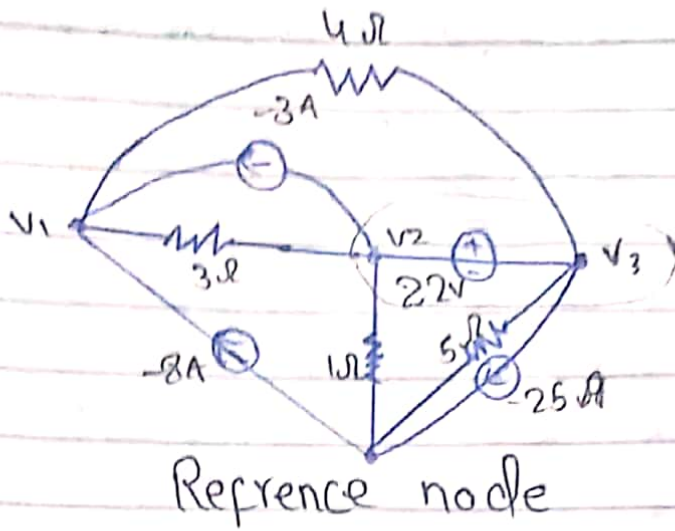 4Ω
-3A
V1
3Ω
V2
+
-
22V
V3
-8A
1Ω
5Ω
-25A
Refrence node